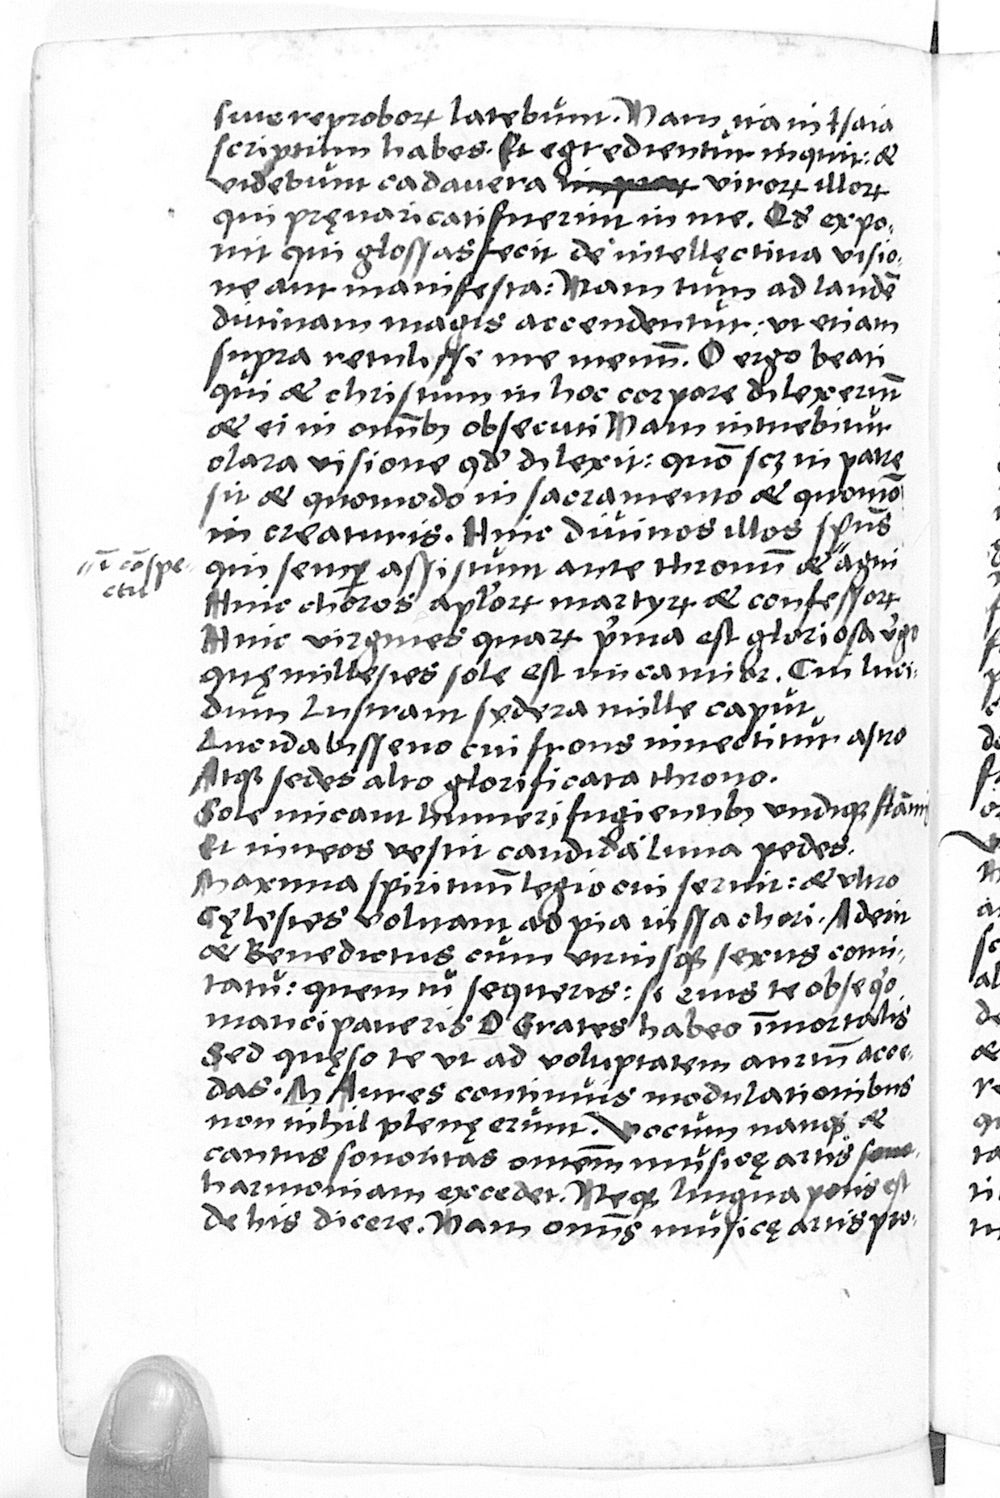 siue reproborꝝ latebunt. Nam ita in Isaia
scriptum habes. Et egredientur inquit: &
videbunt cadauera virorꝝ illorꝝ
qui pręuaricati fuerint in me. Qd̄ expo-
nit qui glossas fecit de intellęctiua visio-
ne aut manifesta: Nam tum ad laudē
diuinam magis accendentur: vt etiam
supra retulisse me memī. O ergo beati
qui & christum in hoc corpore dilexerūt
& ei in omībꝫ obsecuti Nam intuebitur
clara visione qd̓ dilexit: quō scꝫ in patre
sit & quomodo in sacramento & quomō
in creaturis. Huic diuinos illos spūs
qui semꝑ assistunt ante thronū & agni
// ī cōspe-
ctu
Huic choros apl̓orꝝ martyrꝝ & confessorꝝ
Huic virgines quarꝝ p̓ma est gloriosa v̓go
quę millesies sole est micantior. Cui luci-
dum lustrant sydera mille caput
Lucida bisseno cui frons innectitur astro
Atqꝫ sedes alto glorificata throno.
Sole micant humeri fugientibꝫ vndiqꝫ flāmis
Et niueos vestit candida Luna pedes.
Maxima spirituū legio cui seruit: & vltro
Cęlestes voluant ad pia iussa chori. Aderit
& Benedictus cum vtriusqꝫ sexus comi-
tatu: quem tu sequeris: si eius te obseq̓o
mancipaueris D Grates habeo īmortalis
Sed quęso te vt ad voluptatem auriū acce-
das. M Aures continuis modulationibus
non nihil plenę erunt. Vocum nanqꝫ &
cantus sonoritas omēm musicę artis
harmoniam excedet. Neqꝫ lingua potis est
de his dicere. Nam omīs musicę artis pro-